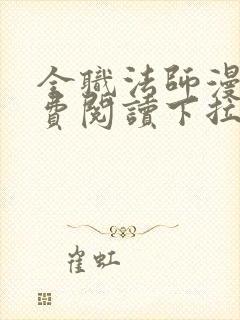 全職法師漫
費閱讀下拉
崔虹